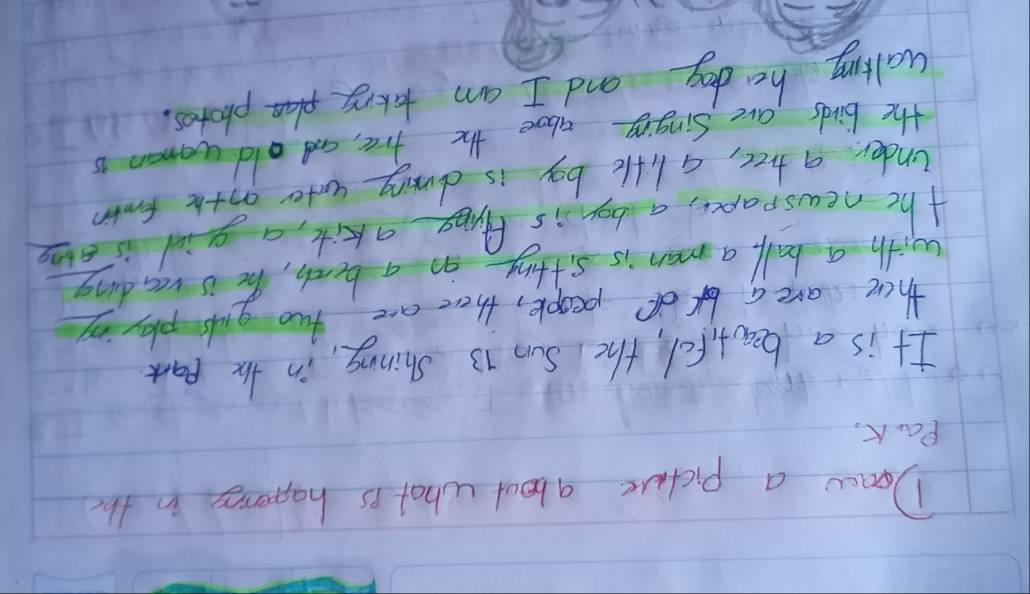 Draw a picture about what is happening in the
Park.
It is a beautifel, the sun is shining, in the Park
there are a lot of people, there are two girls playing
with a ball, a man is sitting on a bench, he is reading
the newspaper, a boy is flying a kite, a girl is eating
under a tree, a little boy is drinking water on the
the birds are singing above the tree, and old woman is
walking her dog and I am taking photos.